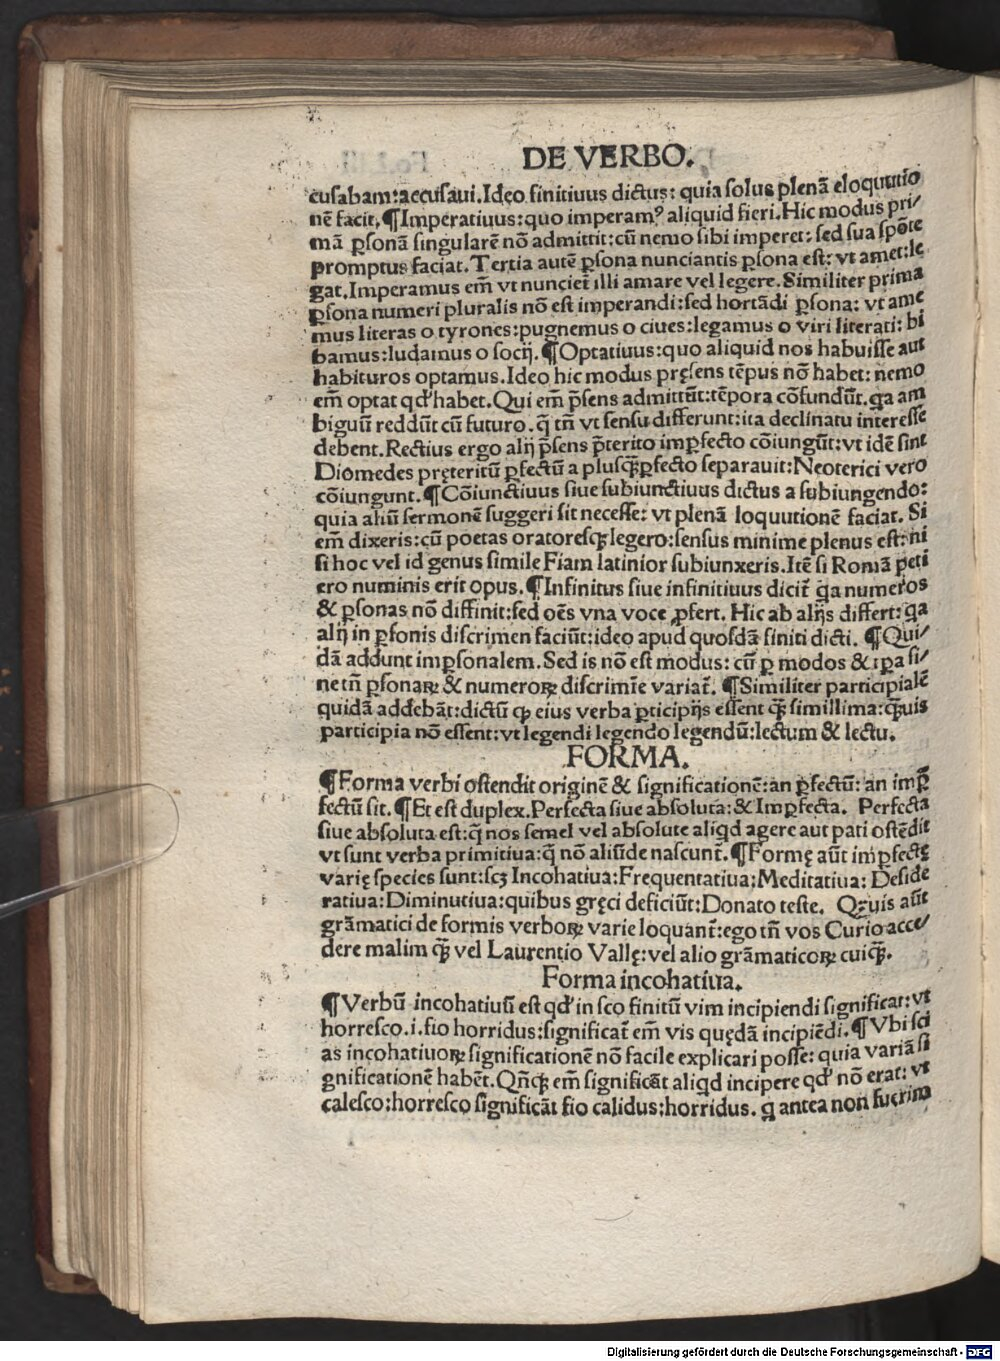 DE VERBO.
cusabam:accusaui.Ideo finitiuus dictus: quia solus plenā eloquutio
nē facit.¶Imperatiuus:quo imperamꝰ aliquid fieri.Hic modus pri/
mā ꝑsonā singularē nō admittit:cū nemo sibi imperet: sed sua spōte
promptus faciat.Tertia autē ꝑsona nunciantis ꝑsona est: vt amet:le
gat.Imperamus em̄ vt nunciet illi amare vel legere.Similiter prima
ꝑsona numeri pluralis nō est imperandi:sed hortādi ꝑsona: vt ame
mus literas o tyrones:pugnemus o ciues:legamus o viri literati: bi
bamus:ludamus o socij.¶Optatiuus:quo aliquid nos habuisse aut
habituros optamus.Ideo hic modus pręsens tēpus nō habet: nemo
em̄ optat qd' habet.Qui em̄ p̄sens admittūt:tēpora cōfundūt.q̣a am
biguū reddūt cū futuro.q̄ tn̄ vt sensu differunt:ita declinatu interesse
debent.Rectius ergo alij p̄sens p̄terito imꝑfecto cōiungūt:vt idē sint
Diomedes pręteritū ꝑfectū a plusq̄ꝑfecto separauit:Neoterici vero
cōiungunt.¶Cōiunctiuus siue subiunctiuus dictus a subiungendo:
quia aliū sermonē suggeri sit necesse: vt plenā loquutionē faciat. Si
em̄ dixeris:cū poetas oratoresq; legero:sensus minime plenus est: ni
si hoc vel id genus simile Fiam latinior subiunxeris.Itē si Romā peti
ero numinis erit opus.¶Infinitus siue infinitiuus dicit̄ q̣a numeros
& ꝑsonas nō diffinit:sed oēs vna voce ꝓfert. Hic ab alijs differt: q̣a
alij in ꝑsonis discrimen faciūt:ideo apud quosdā finiti dicti. ¶Qui/
dā addunt imꝑsonalem.Sed is nō est modus: cū ꝑ modos & tꝑa si/
ne tn̄ ꝑsonaꝝ & numeroꝝ discrimīe variat̄. ¶Similiter participialē
quidā addebāt:dictū ꝙ eius verba ꝑticipijs essent q̄ simillima:q̄uis
participia nō essent:vt legendi legendo legendū:lectum & lectu.
FORMA.
¶Forma verbi ostendit originē & significationē:an ꝑfectū: an imꝑ
fectū sit.¶Et est duplex.Perfecta siue absoluta:& Imꝑfecta. Perfecta
siue absoluta est:q̄ nos semel vel absolute aliq̣d agere aut pati ostēdit
vt sunt verba primitiua:q̄ nō aliūde nascunt̄.¶Formę aūt imꝑfectę
varię species sunt:scꝫ Incohatiua:Frequentatiua:Meditatiua: Deside
ratiua:Diminutiua:quibus gręci deficiūt:Donato teste. Qꝫuis aūt
grāmatici de formis verboꝝ varie loquant̄:ego tn̄ vos Curio acce/
dere malim q̄ vel Laurentio Vallę:vel alio grāmaticoꝝ cuiq̄.
Forma incohatiua.
¶Verbū incohatiuū est qd' in sco finitū vim incipiendi significat: vt
horresco.i.fio horridus:significat̄ em̄ vis quędā incipiēdi.¶Vbi sci
as incohatiuoꝝ significationē nō facile explicari posse: quia variā si
gnificationē habēt.Qn̄q; em̄ significāt aliq̣d incipere qd' nō erat: vt
calesco:horresco significāt fio calidus:horridus. q̣ antea non fuerim
Digitalisierung gefördert durch die Deutsche Forschungsgemeinschaft - DFG